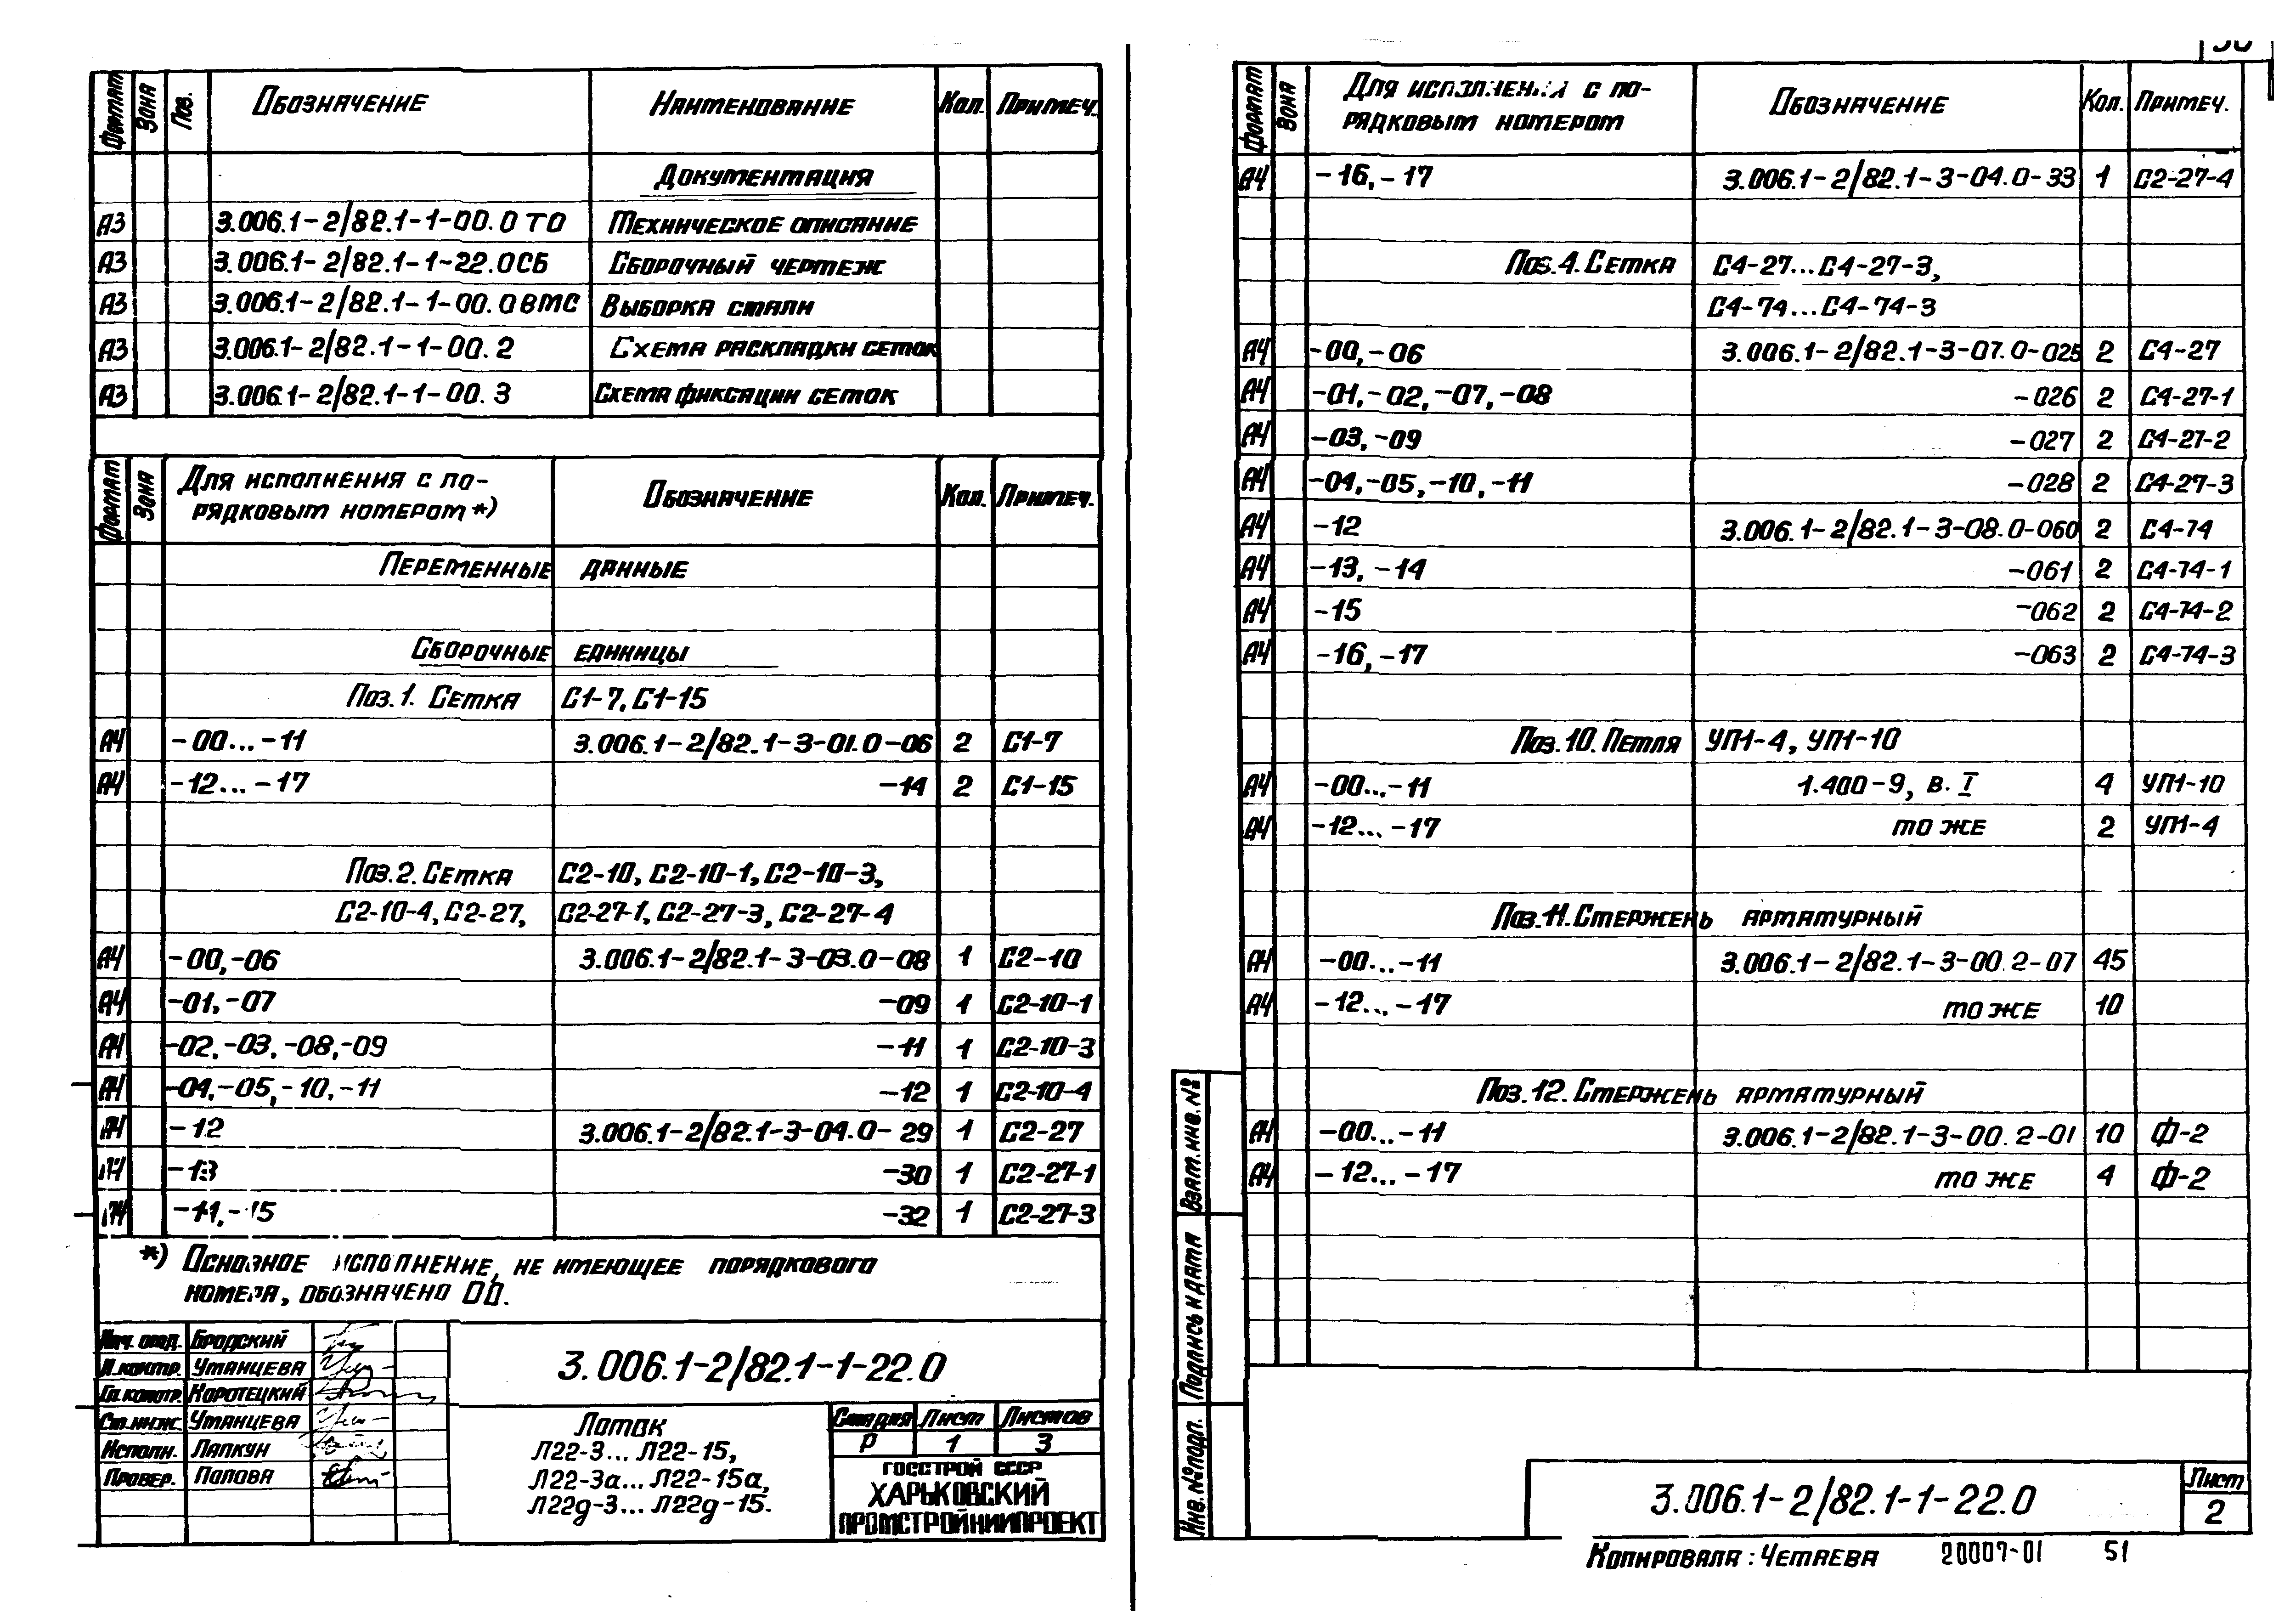 Формат Зона Поз. Обозначение Наименование Кол. Примеч.
Документация
А3 3.006.1-2/82.1-1-00.0ТО Техническое описание
А3 3.006.1-2/82.1-1-22.0СБ Сборочный чертеж
А3 3.006.1-2/82.1-1-00.0ВМС Выборка стали
А3 3.006.1-2/82.1-1-00.2 Схема раскладки сеток
А3 3.006.1-2/82.1-1-00.3 Схема фиксации сеток
Формат Зона Для исполнения с по- Обозначение Кол. Примеч.
рядковым номером *)
Переменные данные
Сборочные единицы
Поз.1. Сетка С1-7, С1-15
А4 -00...-11 3.006.1-2/82.1-3-01.0-06 2 С1-7
А4 -12...-17 -14 2 С1-15
Поз.2. Сетка С2-10, С2-10-1, С2-10-3,
С2-10-4, С2-27, С2-27-1, С2-27-3, С2-27-4
А4 -00,-06 3.006.1-2/82.1-3-03.0-08 1 С2-10
А4 -01,-07 -09 1 С2-10-1
А4 -02,-03,-08,-09 -11 1 С2-10-3
А4 -04,-05,-10,-11 -12 1 С2-10-4
А4 -12 3.006.1-2/82.1-3-04.0-29 1 С2-27
А4 -13 -30 1 С2-27-1
А4 -15 -32 1 С2-27-3
*) Основное исполнение, не имеющее порядкового
номера, обозначено 00.
Нач. отд. Бродский
Н.контр. Уманцева
Гл.констр. Коротецкий
Ст.инж. Уманцева
Исполн. Лапкун
Провер. Попова
3.006.1-2/82.1-1-22.0
Лоток
Л22-3...Л22-15,
Л22-3а...Л22-15а,
Л22д-3...Л22д-15.
Стадия Лист Листов
Р 1 3
ГОССТРОЙ СССР
ХАРЬКОВСКИЙ
ПРОМСТРОЙНИИПРОЕКТ
Формат Зона Для исполнения с по- Обозначение Кол. Примеч.
рядковым номером
А4 -16,-17 3.006.1-2/82.1-3-04.0-33 1 С2-27-4
Поз.4. Сетка С4-27...С4-27-3,
С4-74...С4-74-3
А4 -00,-06 3.006.1-2/82.1-3-07.0-025 2 С4-27
А4 -01,-02,-07,-08 -026 2 С4-27-1
А4 -03,-09 -027 2 С4-27-2
А4 -04,-05,-10,-11 -028 2 С4-27-3
А4 -12 3.006.1-2/82.1-3-08.0-060 2 С4-74
А4 -13,-14 -061 2 С4-74-1
А4 -15 -062 2 С4-74-2
А4 -16,-17 -063 2 С4-74-3
Поз.10. Петля УП1-4, УП1-10
А4 -00...-11 1.400-9, в. I 4 УП1-10
А4 -12...-17 то же 2 УП1-4
Поз.11. Стержень арматурный
А4 -00...-11 3.006.1-2/82.1-3-00.2-07 45
А4 -12...-17 то же 10
Поз.12. Стержень арматурный
А4 -00...-11 3.006.1-2/82.1-3-00.2-01 10 Ф-2
А4 -12...-17 то же 4 Ф-2
Взам.инв.№
Подпись и дата
Инв.№подл.
3.006.1-2/82.1-1-22.0
Лист
2
Копировала: Четаева 20007-01 51